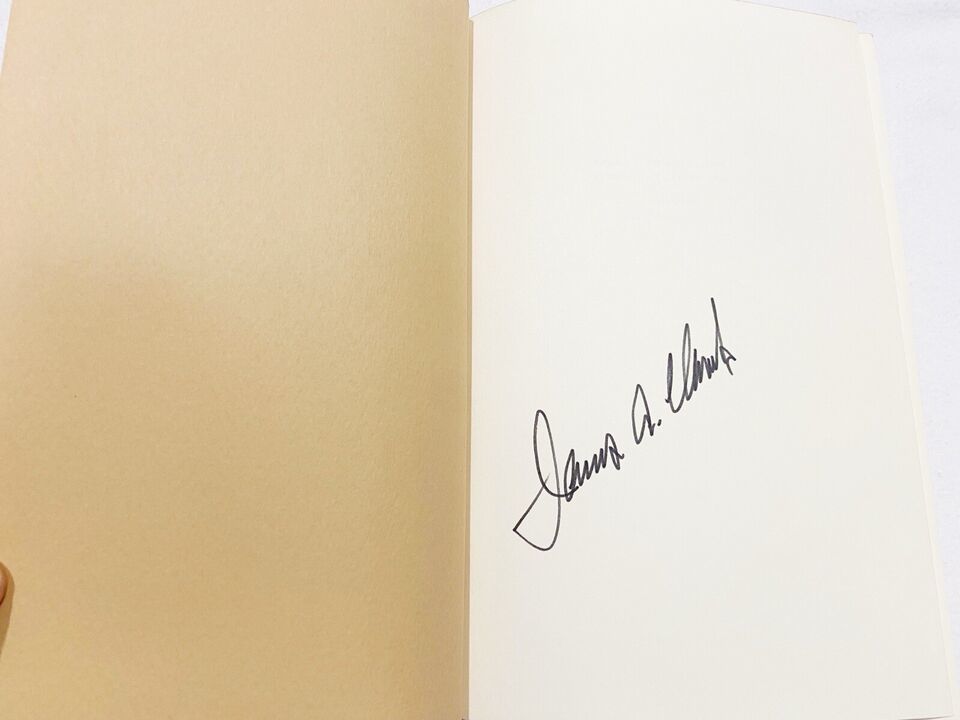 James A. Clark